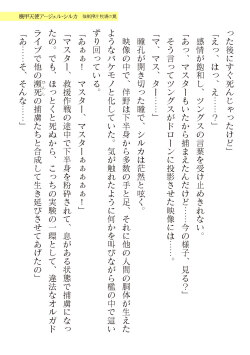 機甲天使アージェル・シルカ
った後にすぐ死んじゃったけど」
「えっ、はっ、え……？」
感情が飽和し、ツングスの言葉を受け止めきれない。
「あっ、マスターもんだから捕まえたんだけど……今の様子、見る？」
そう言ってツングスがドローンに投影させた映像には……。
「マ、マス、ター……」
瞳孔が開き切り、シルカは茫然と呟く。
映像の中で、伴野は下半身から多数の手と足、それに他の人間の胴体が生えた
ようなバケモノと化していた。気が触れたように何かを叫びながら檻の中で這い
ずり回っている。
「あぁぁ！　マスター、マスターぁぁぁぁぁ！」
「マスター、救援作戦の途中で下半身を粉砕されて、息がある状態で捕虜になっ
たの。でも、ほっとくと死んじゃうから、こっちの実験の一環として、違法なオルガド
ライブで他の瀕死の捕虜たちと合成して生き延びさせてあげたの」
「あ……そ、そんな……」